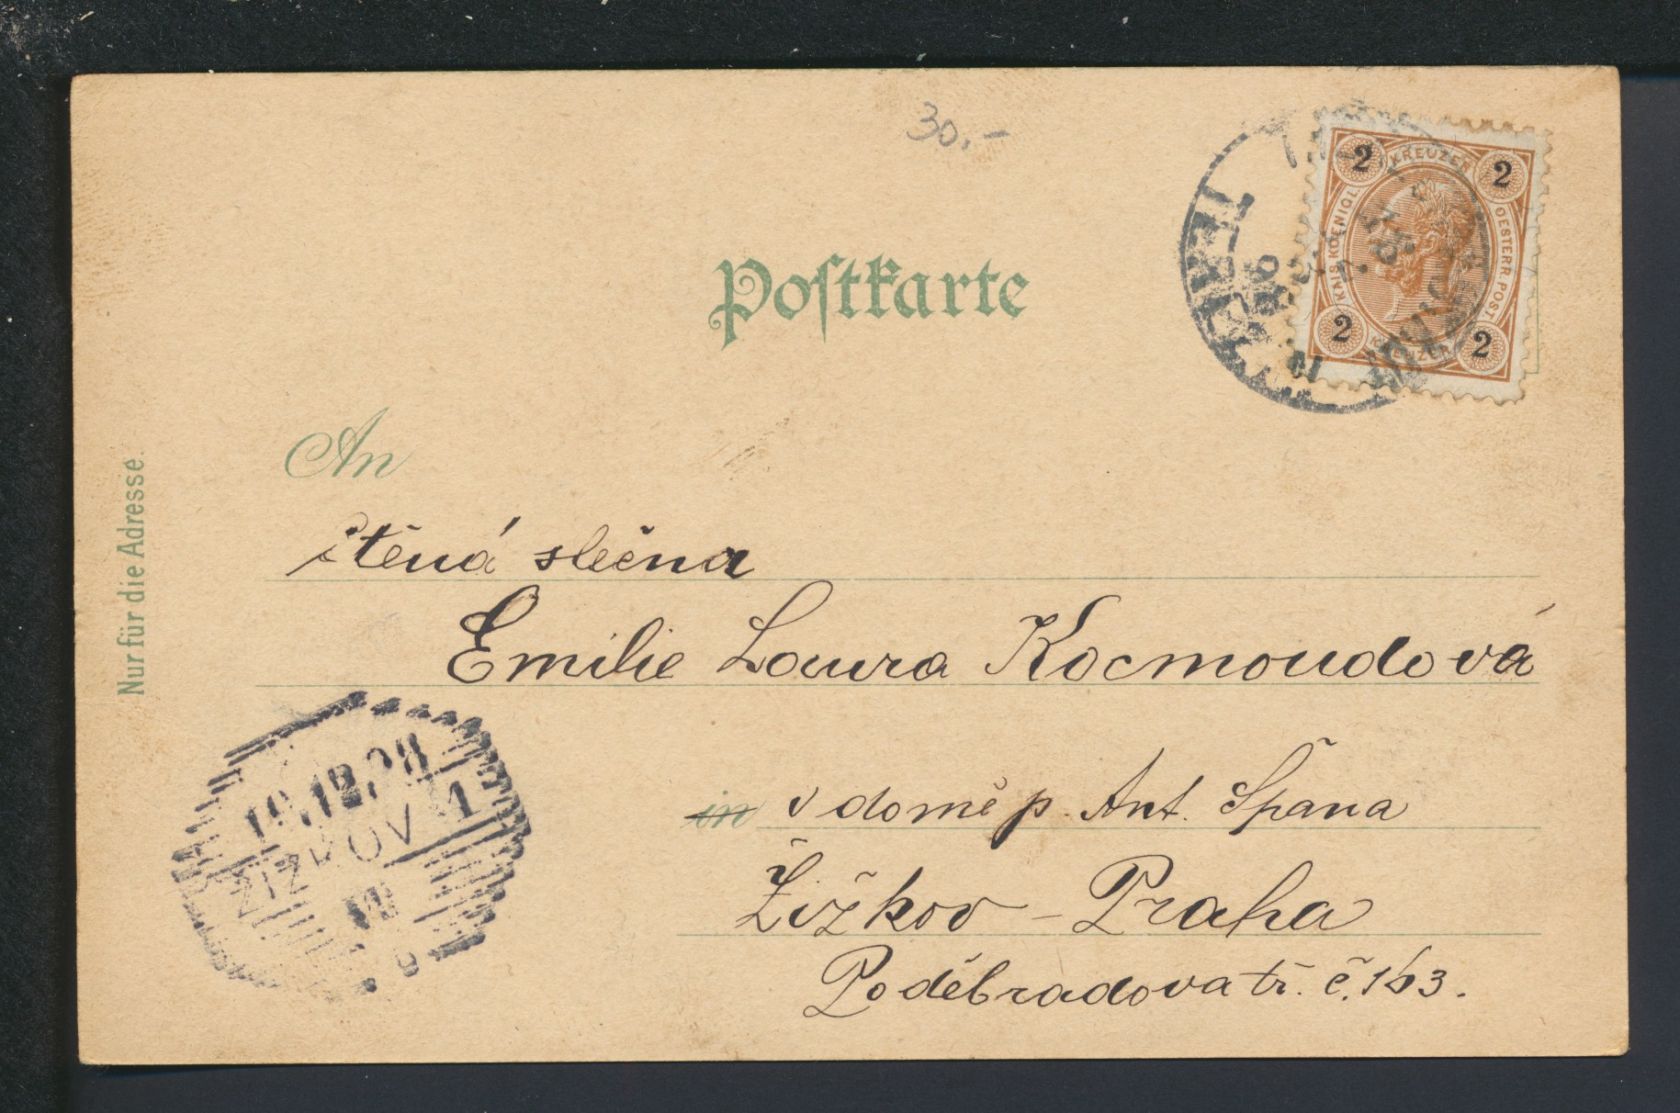 30.-
Postkarte
2 KREUZER 2
KAIS. KOENIGL. OESTERR. POST
2 KREUZER 2
An
Nur für die Adresse.
ctěná slečna
Emilie Laura Kocmoudová
in v domě p. Ant. Špana
19.12.98
ŽIŽKOV 1
Žižkov - Praha
Poděbradova tř. č. 163.